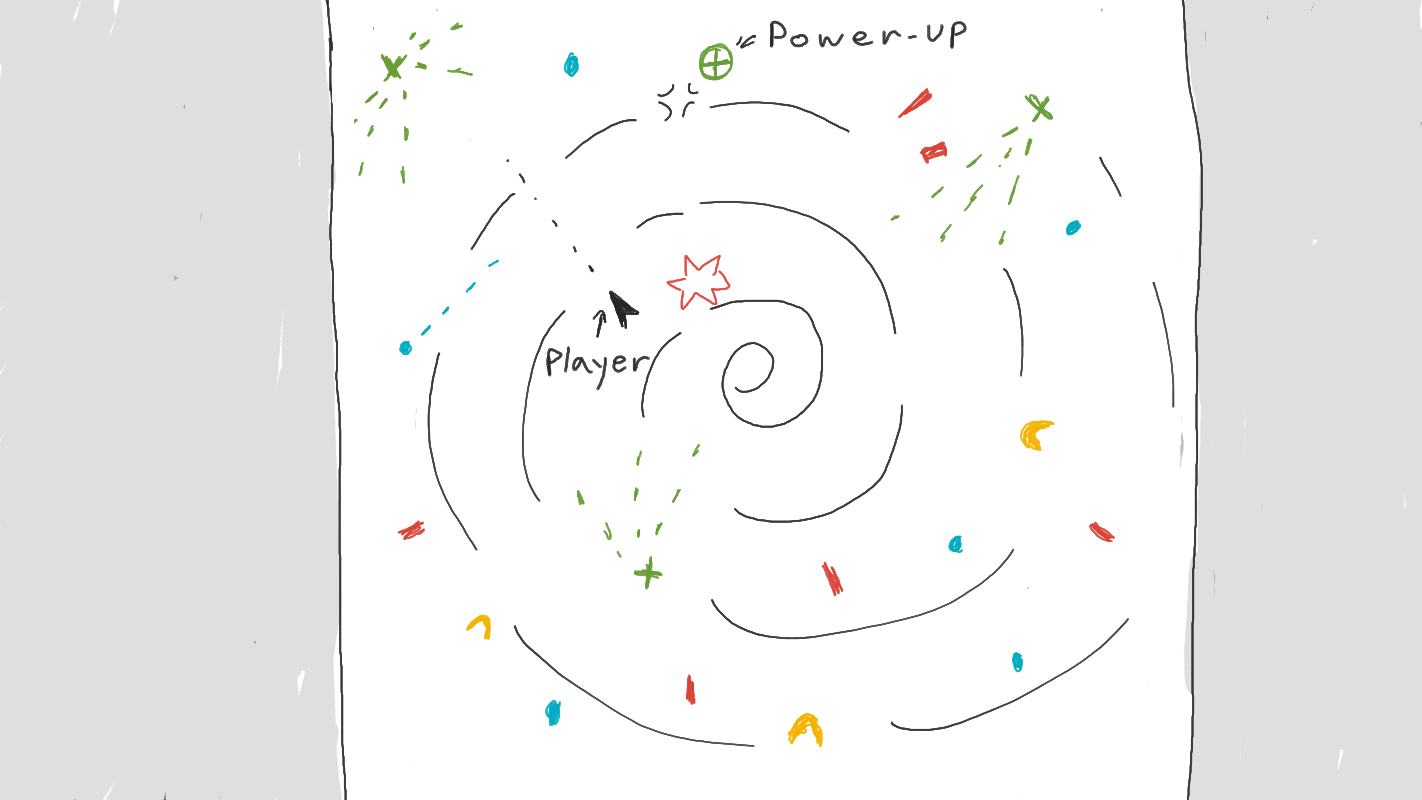 Power-up
Player